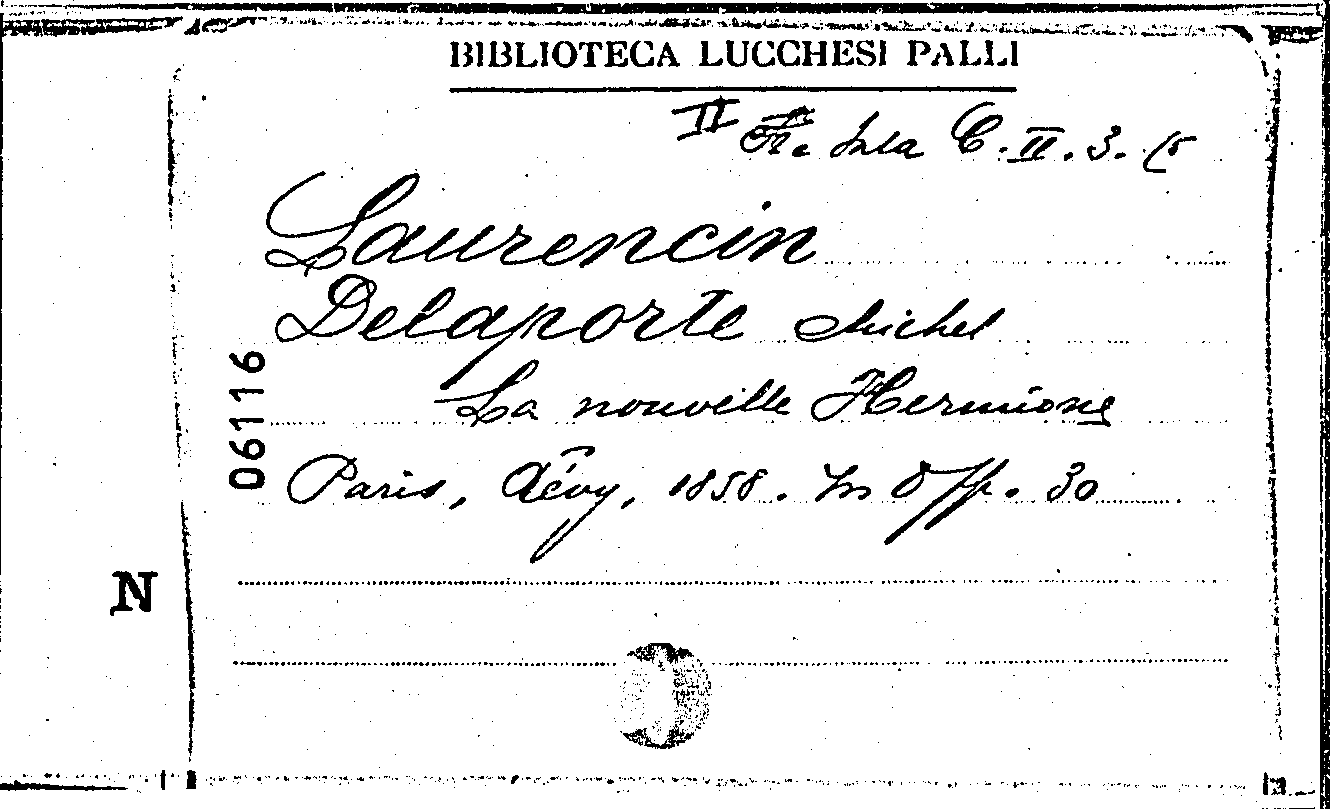 BIBLIOTECA LUCCHESI PALLI
II Sala C. II. 3. 15
Laurencin
Delaporte Michel
La nouvelle Hermione
Paris, Lévy, 1858. In 8 pp. 30
06116
N